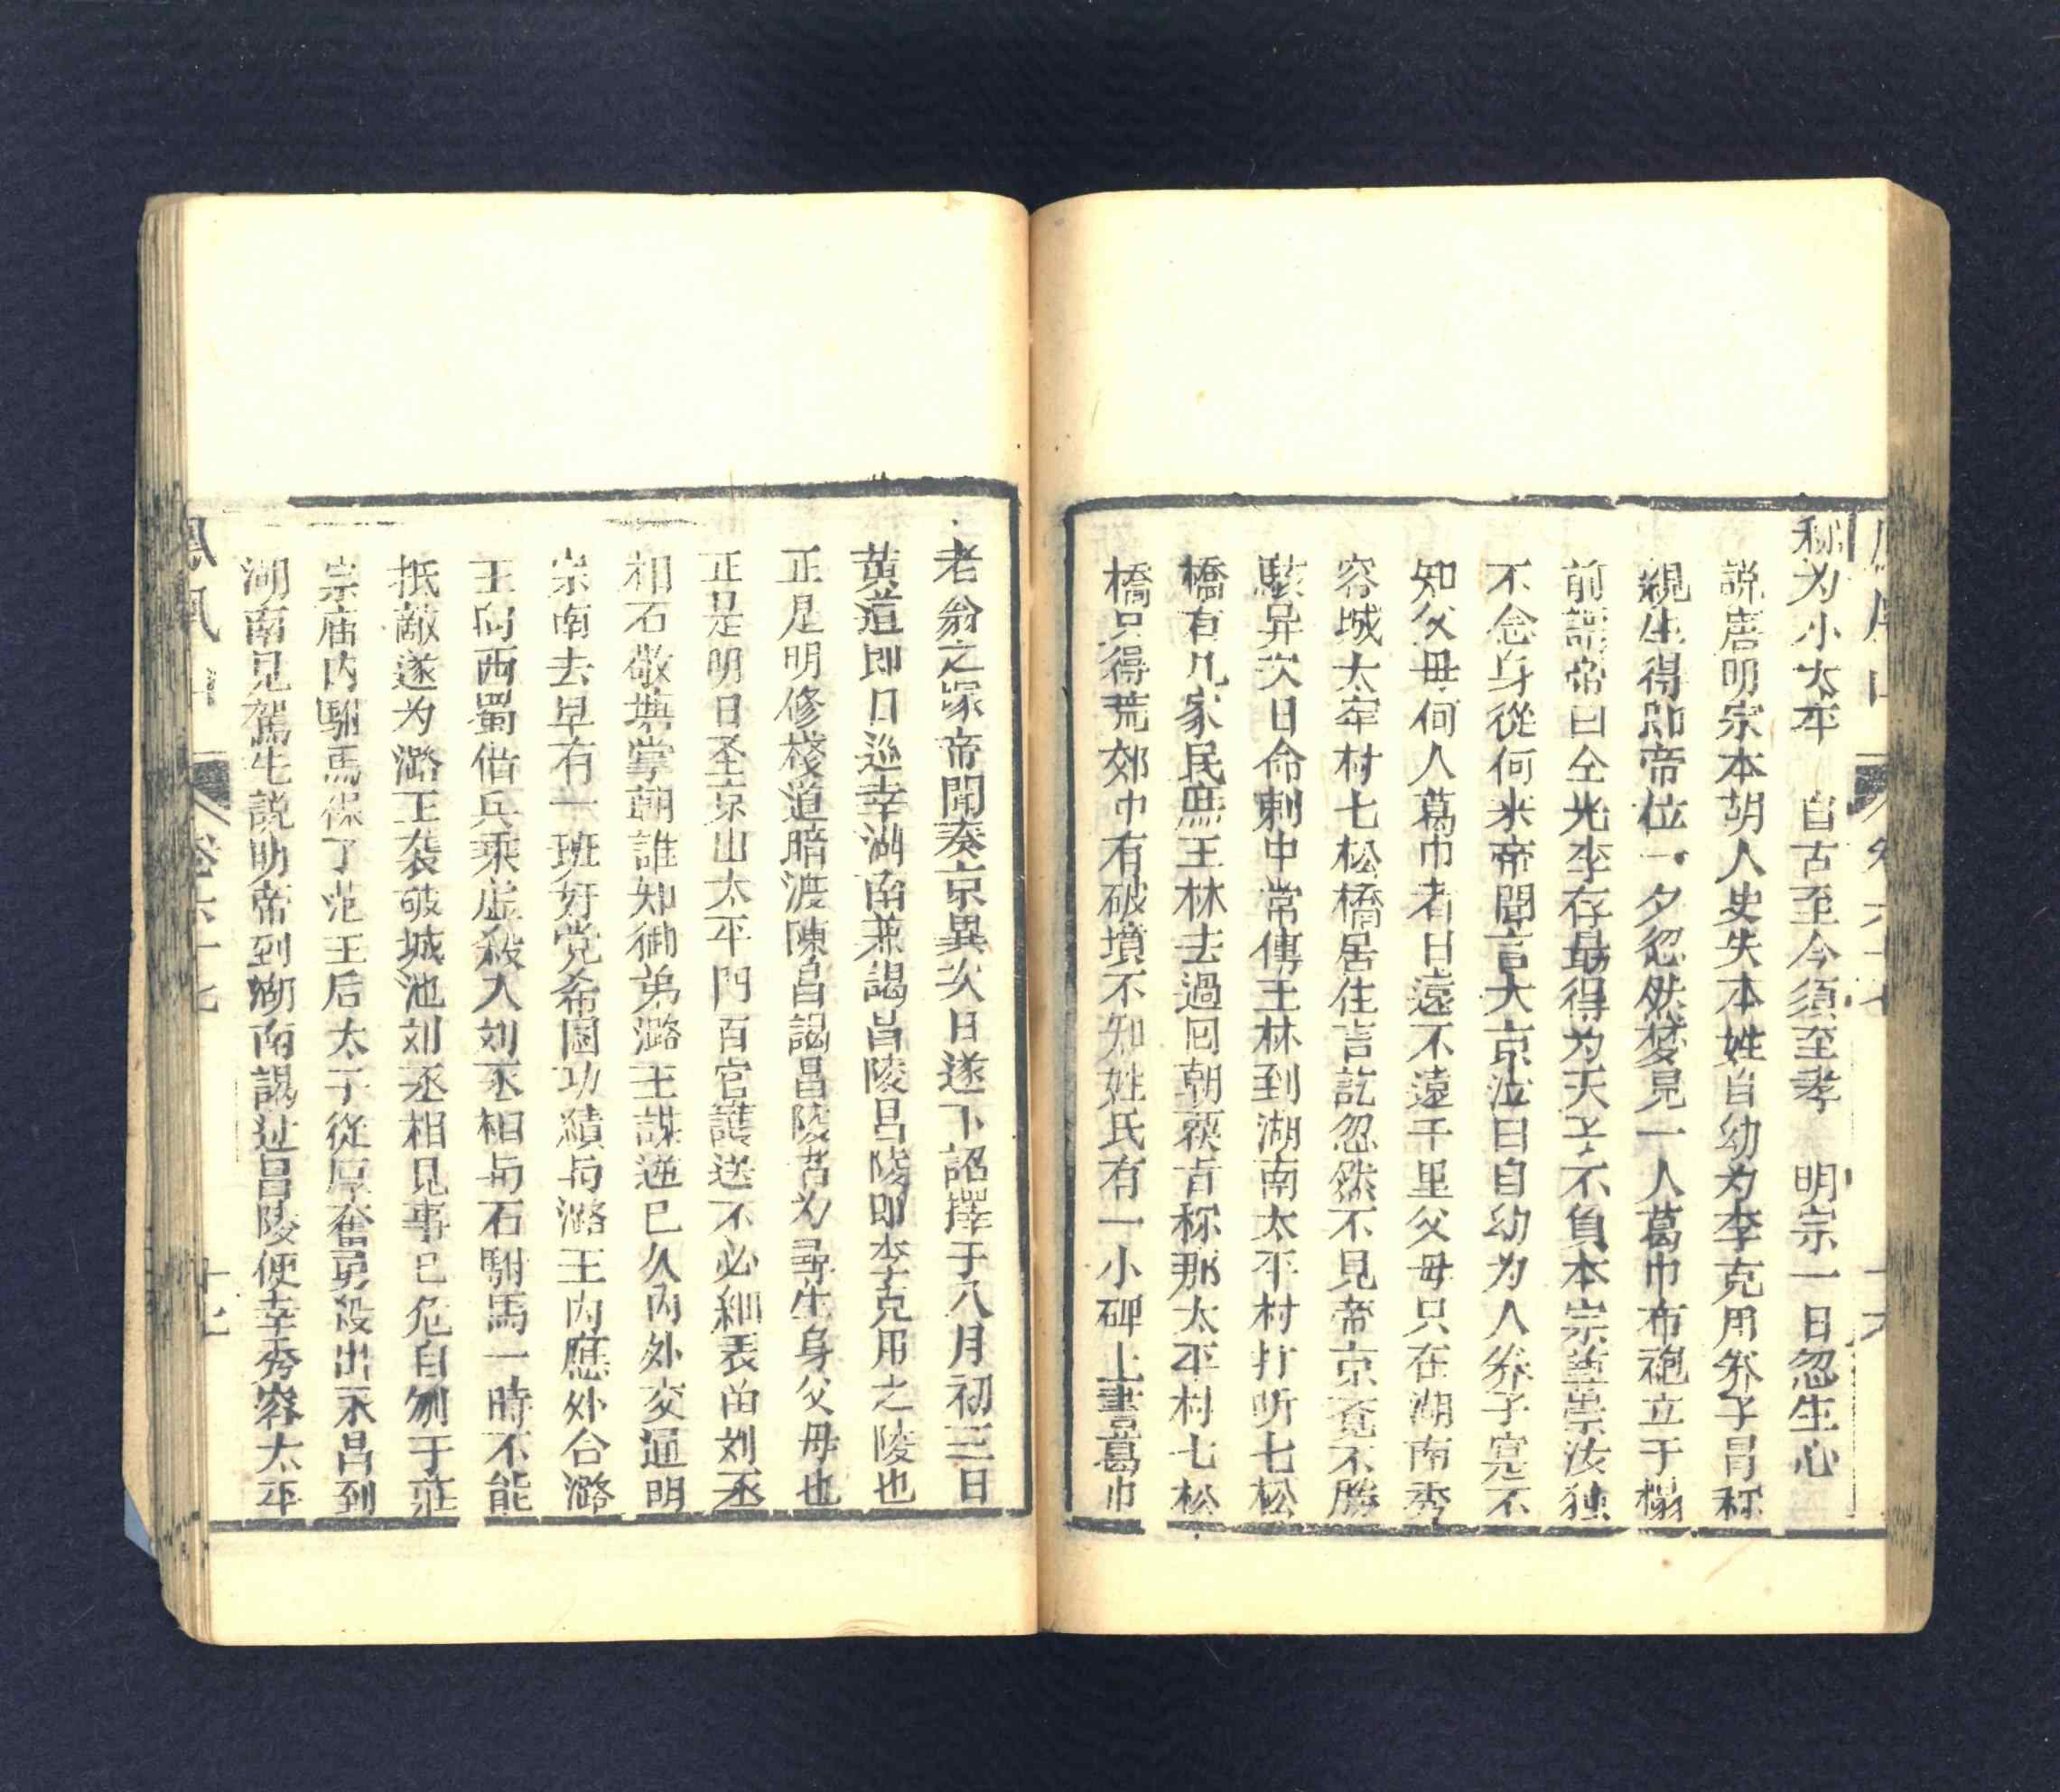 称为小太平　自古至今須至孝　明宗一日忽生心
説唐明宗本胡人史失本姓自幼为李克用养子冒称
親生得即帝位一夕忽然梦見一人葛巾布袍立于榻
前謂帝曰仝光李存最得为天子不負本宗尊崇汝独
不念身從何来帝聞言大京泣曰自幼为人养子寔不
知父母何人葛巾者曰遠不遠千里父母只在湖南秀
容城太宰村七松橋居住言訖忽然不見帝京竟不勝
駭异次日命剌中常傳王林到湖南太平村打听七松
橋有几家民庶王林去過囘朝覆旨称那太平村七松
橋只得荒郊巾有破墳不知姓氏有一小碑上書葛巾
老翁之塚帝聞奏京異次日遂下詔擇于八月初三日
黄道即日巡幸湖南兼謁昌陵昌陵即李克用之陵也
正是明修棧道暗渡陳昌謁昌陵者为尋生身父母也
正是明日圣京出太平門百官護送不必細表苗刘丞
相石敬塘掌朝誰知御弟潞王謀逆已久内外交通明
宗南去早有一班奸党希圖功績与潞王内應外合潞
王向西蜀借兵乘虚殺入刘丞相与石駙馬一時不能
抵敵遂为潞王袭破城池刘丞相見事已危自刎于莊
宗庙内駙馬保了范王后太子從厚奮勇殺出永昌到
湖南見駕先説明帝到湖南謁过昌陵便幸秀容太平
卷六十七
十七